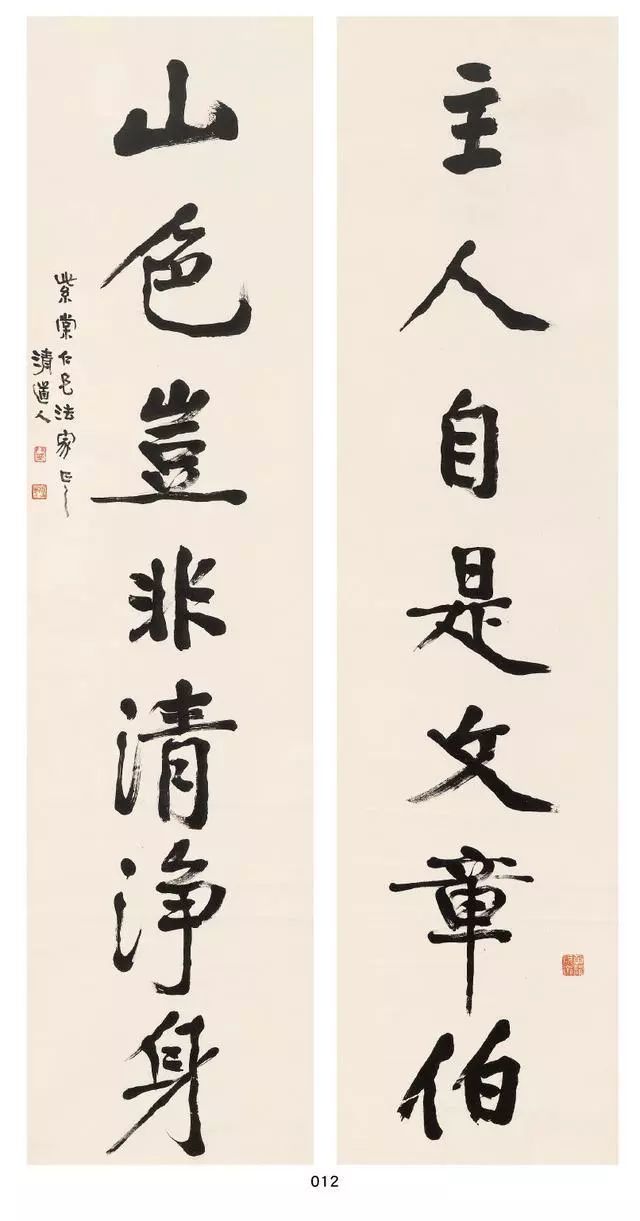 主人自是文章伯
山色豈非清浄身
紫棠仁兄法家正之
清道人
012